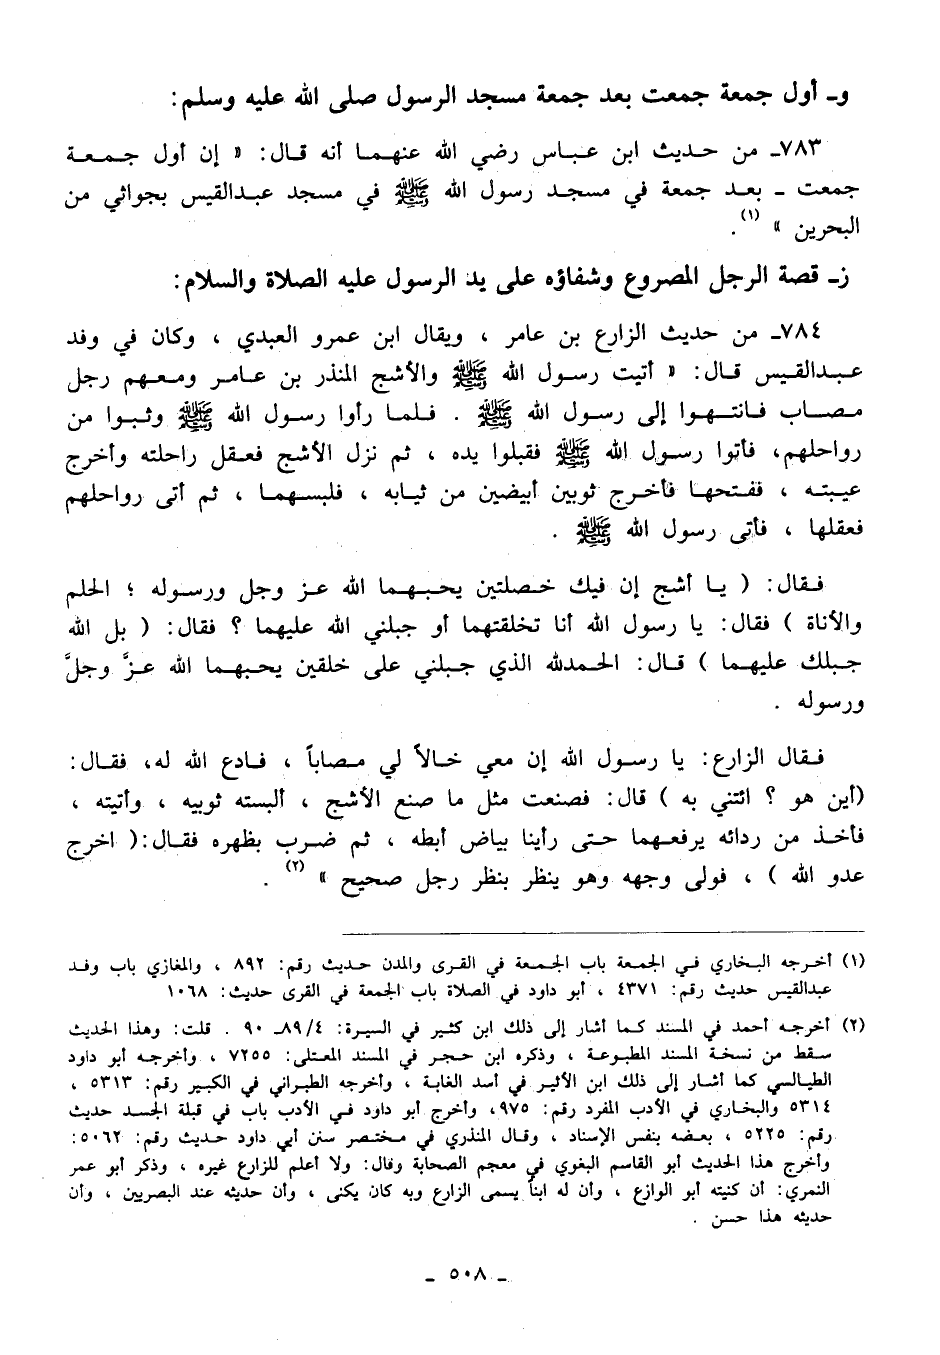 و۔ أول جمعة جمعت بعد جمعة مسجد الرسول صلى الله عليه وسلم:
٧٨٣۔ من حديث ابن عباس رضي الله عنهما أنه قال: « إن أول جمعة
جمعت ۔ بعد جمعة في مسجد رسول الله ﷺ في مسجد عبدالقيس بجواثي من
البحرين » (١).
ز۔ قصة الرجل المصروع وشفاؤه على يد الرسول عليه الصلاة والسلام:
٧٨٤۔ من حديث الزارع بن عامر ، ويقال ابن عمرو العبدي ، وكان في وفد
عبدالقيس قال: « أتيت رسول الله ﷺ والأشج المنذر بن عامر ومعهم رجل
مصاب فانتهوا إلى رسول الله ﷺ . فلما رأوا رسول الله ﷺ وثبوا من
رواحلهم، فأتوا رسول الله ﷺ فقبلوا يده ، ثم نزل الأشج فعقل راحلته وأخرج
عيبته ، ففتحها فأخرج ثوبين أبيضين من ثيابه ، فلبسهما ، ثم أتى رواحلهم
فعقلها ، فأتى رسول الله ﷺ .
فقال: ( يا أشج إن فيك خصلتين يحبهما الله عز وجل ورسوله ؛ الحلم
والأناة ) فقال: يا رسول الله أنا تخلقتهما أو جبلني الله عليهما ؟ فقال: ( بل الله
جبلك عليهما ) قال: الحمدلله الذي جبلني على خلقين يحبهما الله عزَّ وجلَّ
ورسوله .
فقال الزارع: يا رسول الله إن معي خالاً لي مصاباً ، فادع الله له، فقال:
(أين هو ؟ ائتني به ) قال: فصنعت مثل ما صنع الأشج ، ألبسته ثوبيه ، وأتيته ،
فأخذ من ردائه يرفعهما حتى رأينا بياض أبطه ، ثم ضرب بظهره فقال:( اخرج
عدو الله ) ، فولى وجهه وهو ينظر بنظر رجل صحيح » (٢) .
(١) أخرجه البخاري في الجمعة باب الجمعة في القرى والمدن حديث رقم: ٨٩٢ ، والمغازي باب وفد
عبدالقيس حديث رقم: ٤٣٧١ ، أبو داود في الصلاة باب الجمعة في القرى حديث: ١٠٦٨
(٢) أخرجه أحمد في المسند كما أشار إلى ذلك ابن كثير في السيرة: ٨٩/٤۔ ٩٠ . قلت: وهذا الحديث
سقط من نسخة المسند المطبوعة ، وذكره ابن حجر في المسند المعتلى: ٧٢٥٥ ، وأخرجه أبو داود
الطيالسي كما أشار إلى ذلك ابن الأثير في أسد الغابة ، وأخرجه الطبراني في الكبير رقم: ٥٣١٣ ،
٥٣١٤ والبخاري في الأدب المفرد رقم: ٩٧٥، وأخرج أبو داود في الأدب باب في قبلة الجسد حديث
رقم: ٥٢٢٥ ، بعضه بنفس الإسناد ، وقال المنذري في مختصر سنن أبي داود حديث رقم: ٥٠٦٢:
وأخرج هذا الحديث أبو القاسم البغوي في معجم الصحابة وقال: ولا أعلم للزارع غيره ، وذكر أبو عمر
النمري: أن كنيته أبو الوازع ، وأن له ابناً يسمى الزارع وبه كان يكنى ، وأن حديثه عند البصريين ، وأن
حديثه هذا حسن .
۔ ٥٠٨ ۔